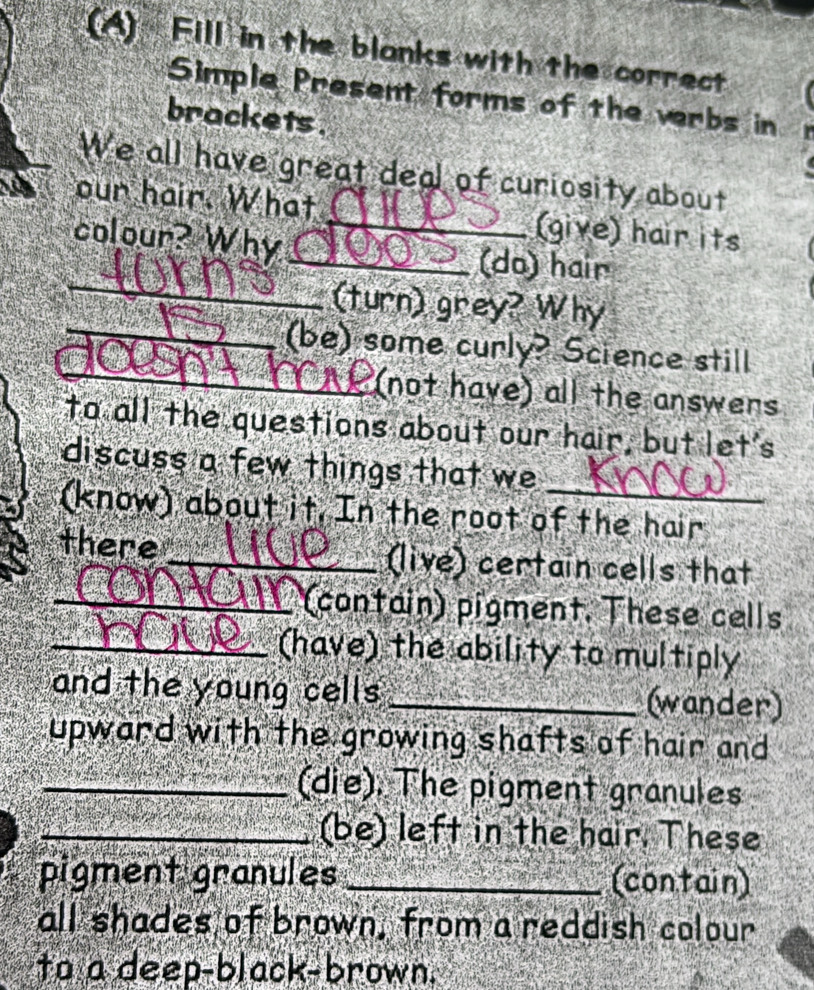 (A) Fill in the blanks with the correct
Simple Present forms of the verbs in
brackets.
We all have great deal of curiosity about
our hair. What gives (give) hair its
colour? Why does (do) hair
turns (turn) grey? Why
is (be) some curly? Science still
doesn't have (not have) all the answers
to all the questions about our hair, but let's
discuss a few things that we know
(know) about it. In the root of the hair
there live (live) certain cells that
contain (contain) pigment. These cells
have (have) the ability to multiply
and the young cells ________ (wander)
upward with the growing shafts of hair and
________ (die). The pigment granules
________ (be) left in the hair. These
pigment granules ________ (contain)
all shades of brown, from a reddish colour
to a deep-black-brown.